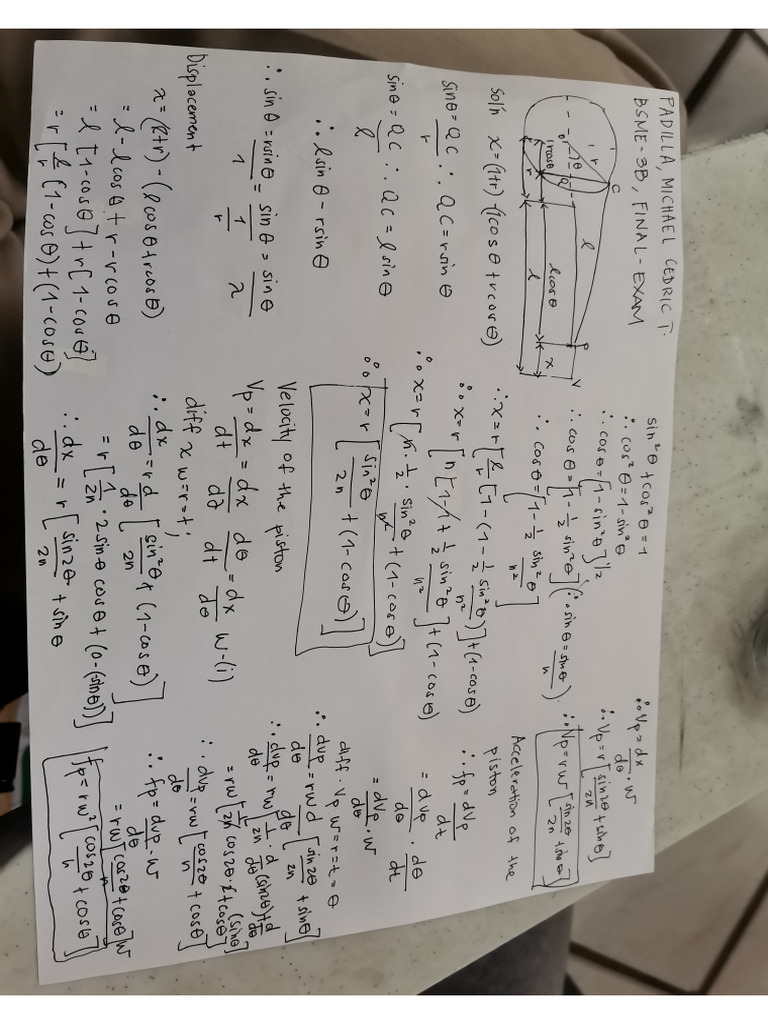 PADILLA, MICHAEL CEDRIC T.
BSME-3B, FINAL-EXAM
C
r
θ
Q
rcosθ
r
l
lcosθ
l
P
x
V
Sol'n x=(l+r)-(lcosθ+rcosθ)
sinθ = QC/r ∴ QC = rsinθ
sinθ = QC/l ∴ QC = lsinθ
∴ lsinθ - rsinθ
∴ sinθ = rsinθ/1 = sinθ/(1/r) = sinθ/λ
Displacement
x = (l+r) - (lcosθ+rcosθ)
= l - lcosθ + r - rcosθ
= l[1-cosθ] + r[1-cosθ]
= r[l/r (1-cosθ) + (1-cosθ)
sin²θ + cos²θ = 1
∴ cos²θ = 1-sin²θ
∴ cosθ = [1-sin²θ]^1/2
∴ cosθ = [1-1/2 sin²θ] (∴ sinθ = sinθ/n)
∴ cosθ = [1-1/2 sin²θ/n²]
∴ x = r[l/r [1-(1-1/2 sin²θ/n²)] + (1-cosθ)
∴ x = r[n[1-1+1/2 sin²θ/n²] + (1-cosθ)
∴ x = r[n·1/2·sin²θ/n² + (1-cosθ)]
∴ x = r[sin²θ/2n + (1-cosθ)]
Velocity of the piston
Vp = dx/dt = dx/dθ dθ/dt = dx/dθ w-(i)
diff x w=r=t;
∴ dx/dθ = r d/dθ [sin²θ/2n + (1-cosθ)]
= r[1/2n · 2sinθ cosθ + (0-(sinθ))]
∴ dx/dθ = r[sin2θ/2n + sinθ
∴ Vp = dx/dθ · w
∴ Vp = r[sin2θ/2n + sinθ]
∴ Vp = rw[sin2θ/2n + sinθ]
Acceleration of the
piston
∴ fp = dVp/dt
= dVp/dθ · dθ/dt
= dVp/dθ · w
diff. Vp w=r=t=θ
∴ dvp/dθ = rwd/dθ [sin2θ/2n + sinθ]
∴ dvp/dθ = rw[1/2n · d/dθ (sin2θ) + d/dθ (sinθ)
= rw[1/2n cos2θ·2 + cosθ]
∴ dvp/dθ = rw[cos2θ/n + cosθ]
∴ fp = dvp/dθ · w
= rw[cos2θ/n + cosθ]w
fp = rw²[cos2θ/n + cosθ]